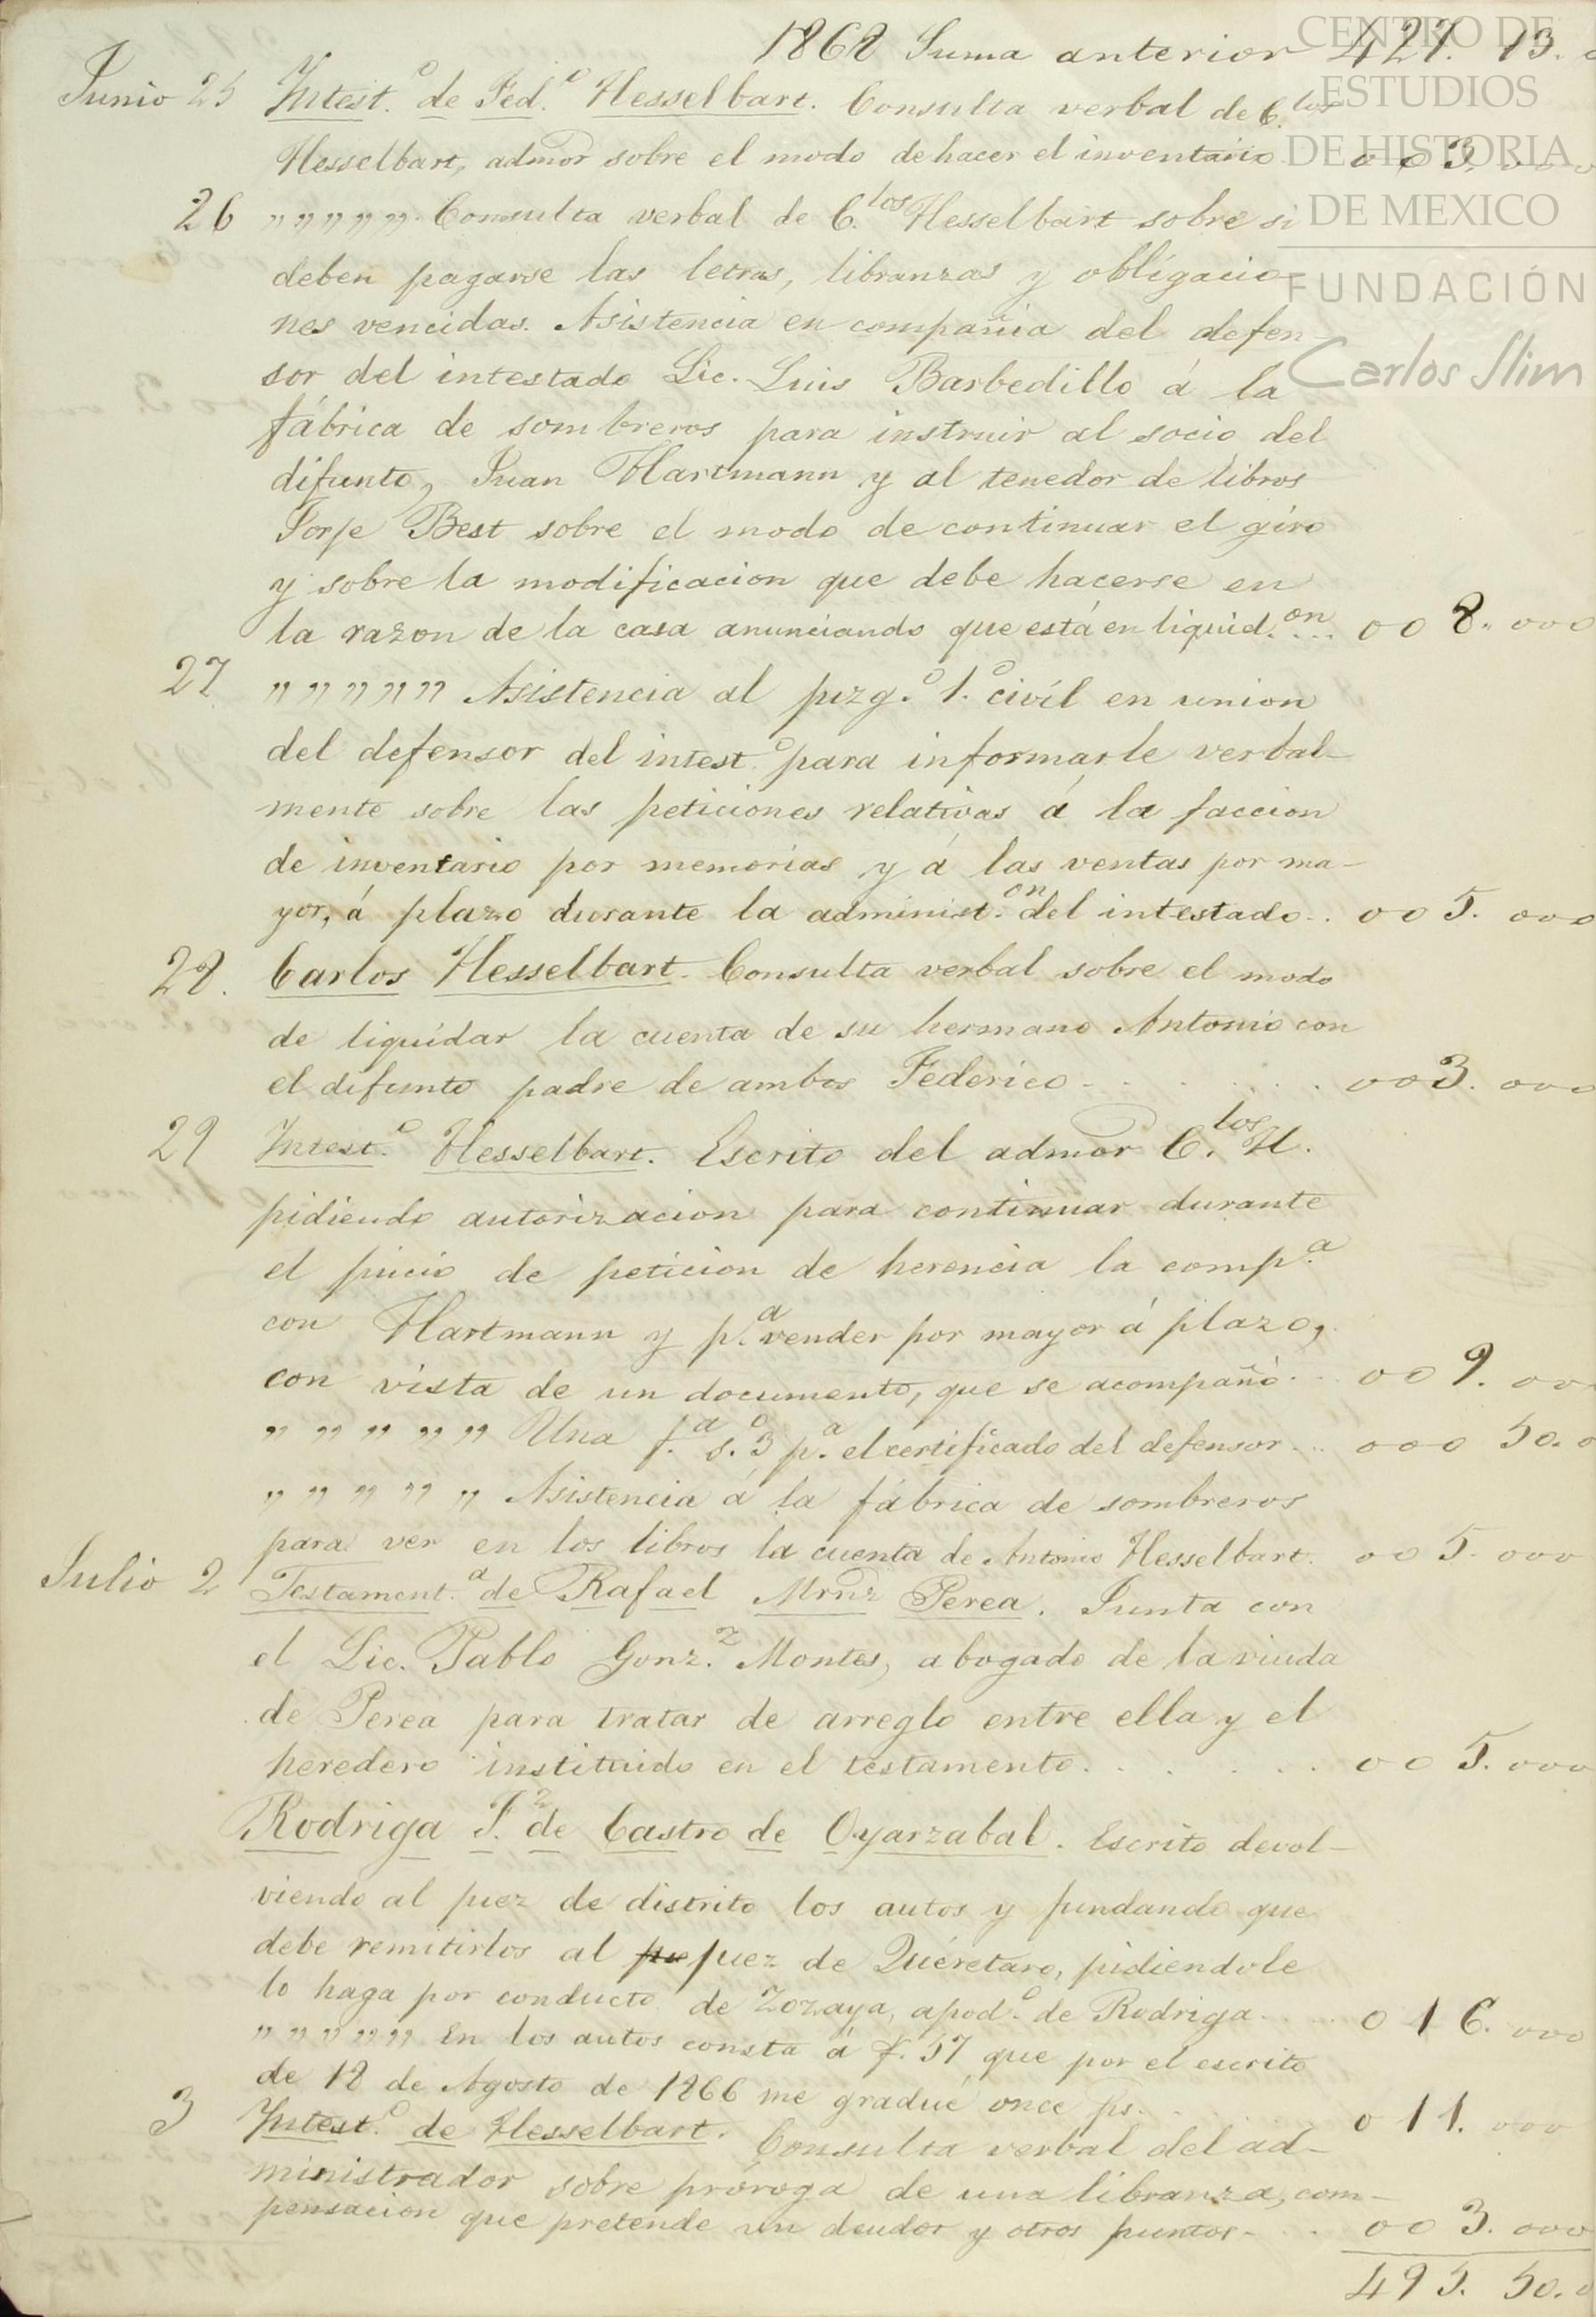 1868 Suma anterior 427. 13.
CENTRO DE
ESTUDIOS
DE HISTORIA
DE MEXICO
FUNDACIÓN
Carlos Slim
Junio 25 Intest.º de Fed.º Hesselbart. Consulta verbal de C.los
Hesselbart, admor sobre el modo de hacer el inventario 003. 000
26 " " " " " Consulta verbal de C.los Hesselbart sobre si
deben pagarse las letras, libranzas y obligacio-
nes vencidas. Asistencia en compañia del defen-
sor del intestado Lic. Luis Barbedillo á la
fábrica de sombreros para instruir al socio del
difunto, Juan Hartmann y al tenedor de libros
Jorje Best sobre el modo de continuar el giro
y sobre la modificacion que debe hacerse en
la razon de la casa anunciando que está en liquid.on ... 008. 000
27 " " " " " Asistencia al juzg.º 1.º civil en union
del defensor del intest.º para informarle verbal-
mente sobre las peticiones relativas á la faccion
de inventario por memorias y á las ventas por ma-
yor, á plazo durante la administ.on del intestado.. 005. 000
28. Carlos Hesselbart. Consulta verbal sobre el modo
de liquidar la cuenta de su hermano Antonio con
el difunto padre de ambos Federico . . . . . . 003. 000
29 Intest.º Hesselbart. Escrito del admor C.los H.
pidiendo autorizacion para continuar durante
el juicio de peticion de herencia la comp.a
con Hartmann y p.a vender por mayor á plazo,
con vista de un documento, que se acompañó ... 009. 00
" " " " " Una f.a s. 3º p.a el certificado del defensor ... 000 50. 0
" " " " " Asistencia á la fábrica de sombreros
para ver en los libros la cuenta de Antonio Hesselbart. 005. 000
Julio 2 Testament.a de Rafael Mrnz Perea. Junta con
el Lic. Pablo Gonz.z Montes, abogado de la viuda
de Perea para tratar de arreglo entre ella y el
heredero instituido en el testamento. . . . . . 005. 000
Rodriga F.z de Castro de Oyarzabal. Escrito devol-
viendo al juez de distrito los autos y fundando que
debe remitirlos al ju juez de Quéretaro, pidiendole
lo haga por conducto de Zozaya, apod.º de Rodriga .... 016. 000
" " " " " En los autos consta á f. 57 que por el escrito
de 18 de Agosto de 1866 me gradué once ps. . . 011. 000
3 Intest.º de Hesselbart. Consulta verbal del ad-
ministrador sobre próroga de una libranza, com-
pensacion que pretende un deudor y otros puntos . . 003. 000
495. 50. 0